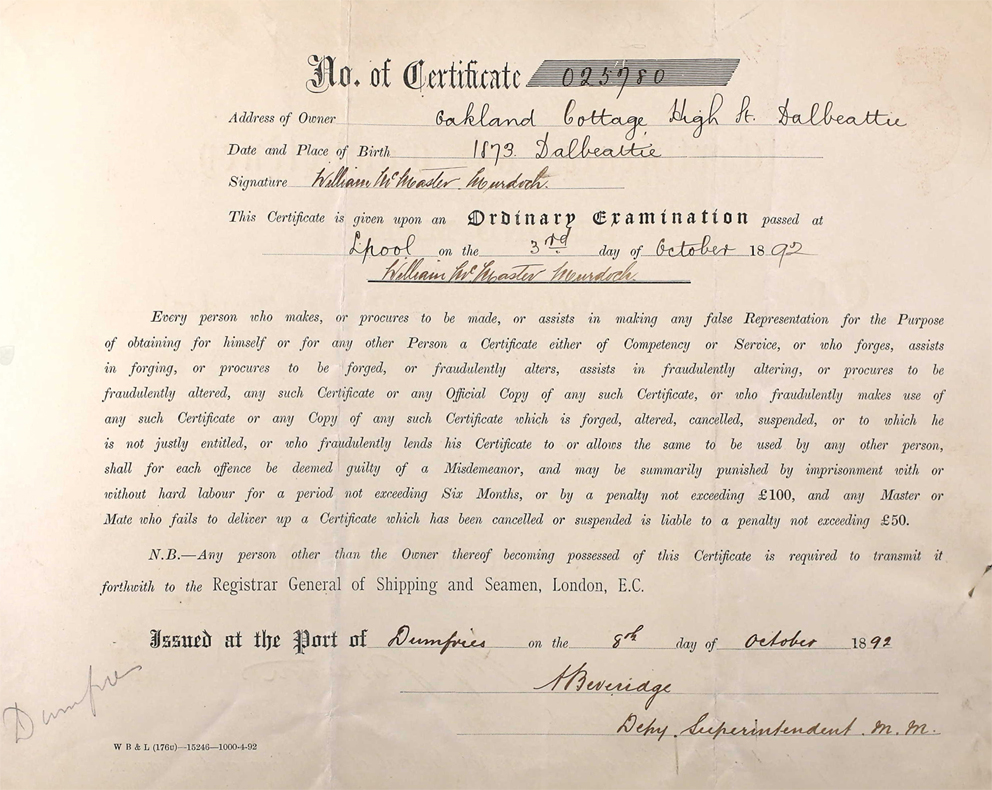 No. of Certificate 025780
Address of Owner Oakland Cottage, High St. Dalbeattie
Date and Place of Birth 1873. Dalbeattie
Signature William McMaster Murdoch.
This Certificate is given upon an Ordinary Examination passed at
L'pool on the 3rd day of October 1892
William McMaster Murdoch.
Every person who makes, or procures to be made, or assists in making any false Representation for the Purpose
of obtaining for himself or for any other Person a Certificate either of Competency or Service, or who forges, assists
in forging, or procures to be forged, or fraudulently alters, assists in fraudulently altering, or procures to be
fraudulently altered, any such Certificate or any Official Copy of any such Certificate, or who fraudulently makes use of
any such Certificate or any Copy of any such Certificate which is forged, altered, cancelled, suspended, or to which he
is not justly entitled, or who fraudulently lends his Certificate to or allows the same to be used by any other person,
shall for each offence be deemed guilty of a Misdemeanor, and may be summarily punished by imprisonment with or
without hard labour for a period not exceeding Six Months, or by a penalty not exceeding £100, and any Master or
Mate who fails to deliver up a Certificate which has been cancelled or suspended is liable to a penalty not exceeding £50.
N.B.—Any person other than the Owner thereof becoming possessed of this Certificate is required to transmit it
forthwith to the Registrar General of Shipping and Seamen, London, E.C.
Issued at the Port of Dumfries on the 8th day of October 1892
A Beveridge
Depy. Superintendent M. M.
Dumfries
W B & L (176c)—15246—1000-4-92